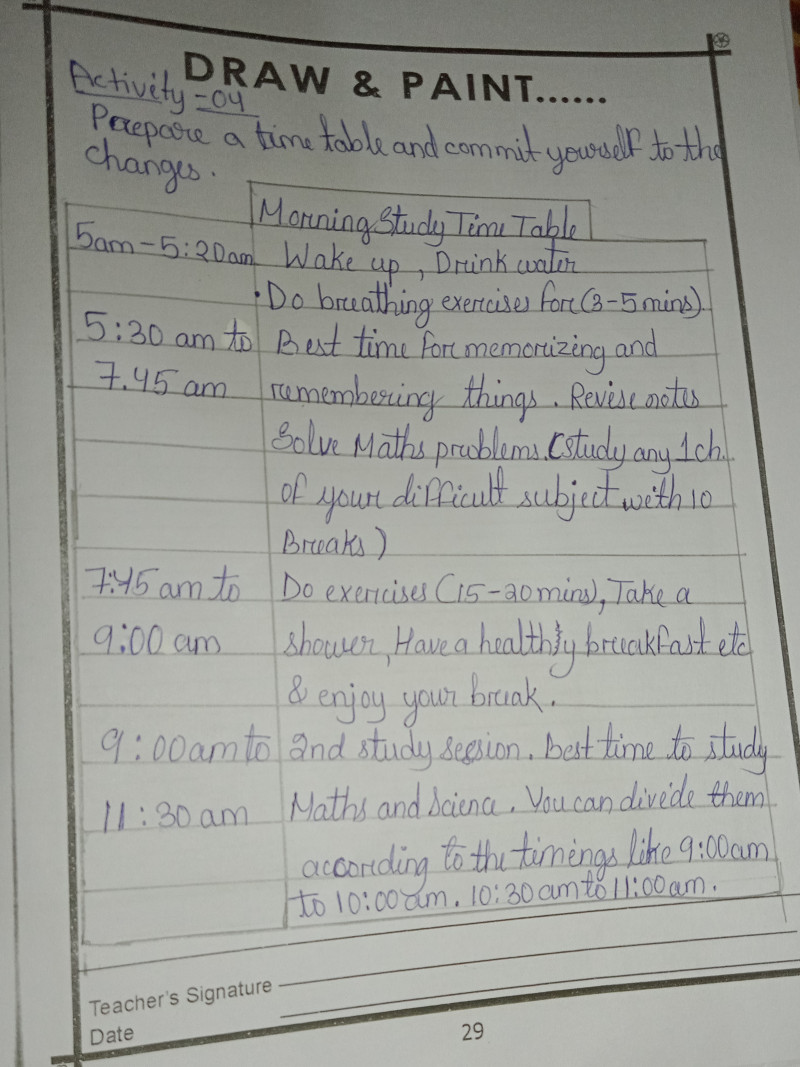 DRAW & PAINT......
Activity - 04
Prepare a time table and commit yourself to the
changes.
Morning Study Time Table
5am - 5:20am Wake up, Drink water
• Do breathing exercises for (3-5 mins).
5:30 am to Best time for memorizing and
7.45 am remembering things. Revise notes
Solve Maths problems. (study any 1 ch.
of your difficult subject with 10
Breaks)
7:45 am to Do exercises (15-20 mins), Take a
9:00 am shower, Have a healthy breakfast etc
& enjoy your break.
9:00am to 2nd study session. Best time to study
11:30 am Maths and Scienc. You can divide them
according to the timings like 9:00am
to 10:00am. 10:30 am to 11:00am.
Teacher's Signature
Date
29